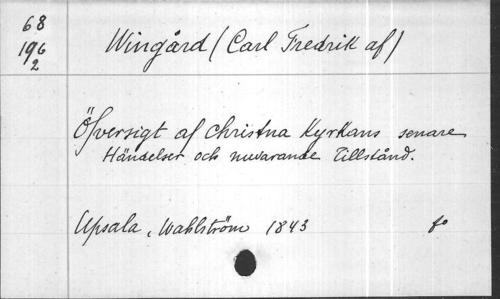 68
196
2
Wingård (Carl Fredrik af)
Öfversigt af christna Kyrkans senare
Händelser och nuvarande Tillstånd.
Upsala, Wahlström 1843 fo